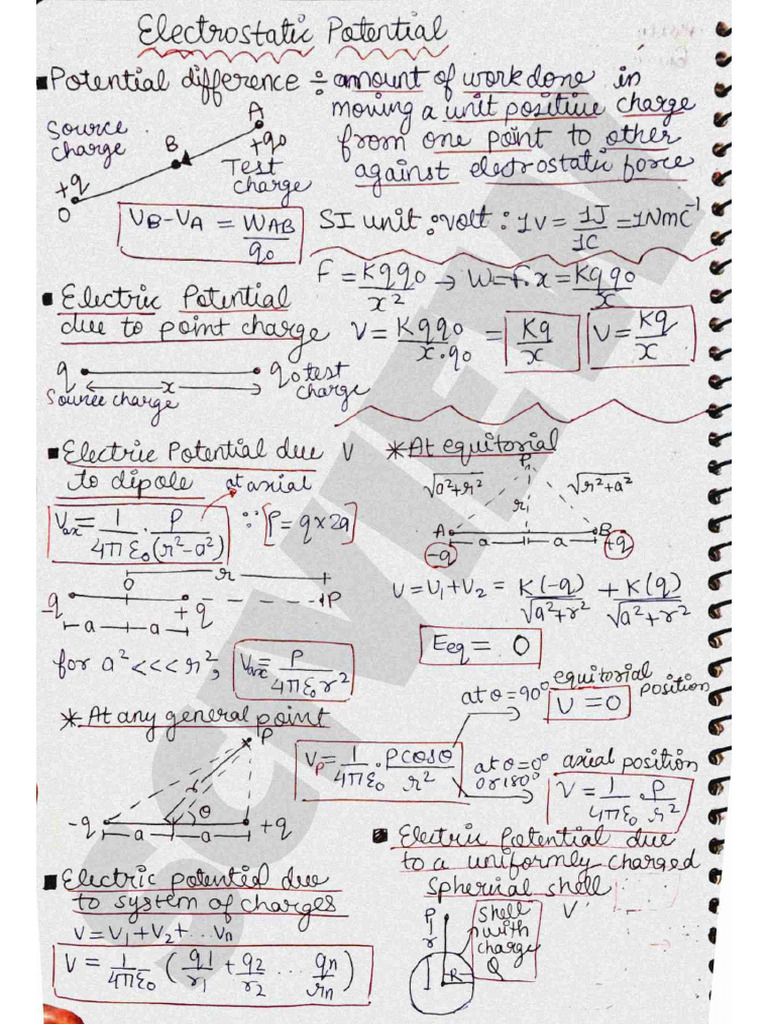 Electrostatic Potential
▪Potential difference ÷ amount of work done in
moving a unit positive charge
from one point to other
against electrostatic force
Source charge
+q
O
B
A
+q₀
Test charge
V_B-V_A = W_AB/q₀
SI unit : volt : 1V = 1J/1C = 1NmC⁻¹
▪ Electric Potential
due to point charge
F = Kqq₀/x² → W=F.x = Kqq₀/x
V = Kqq₀/x.q₀ = Kq/x
V = Kq/x
q
q₀ test charge
x
Source charge
▪Electric Potential due
to dipole
V
at axial
V_ax = 1/4πε₀ . P/(r²-a²)
∵ [P = q×2a]
O
r
-q
+q
P
a
a
for a² <<< r², V_ax = P/4πε₀r²
*At equitorial
P
√a²+r²
√r²+a²
r
A
B
a
a
-q
+q
V = V₁+V₂ = K(-q)/√a²+r² + K(q)/√a²+r²
Eeq = 0
* At any general point
P
r
θ
-q
a
a
+q
V_P = 1/4πε₀ . Pcosθ/r²
at θ=90°
equitorial position
V = 0
at θ=0°
or 180°
axial position
V = 1/4πε₀ . P/r²
▪Electric potential due
to system of charges
V = V₁+V₂+... Vn
V = 1/4πε₀ (q1/r₁ + q2/r₂ ... qn/rn)
▪ Electric Potential due
to a uniformly charged
spherial shell
P
r
R
shell
with
charge
Q
V
SCIVIEW